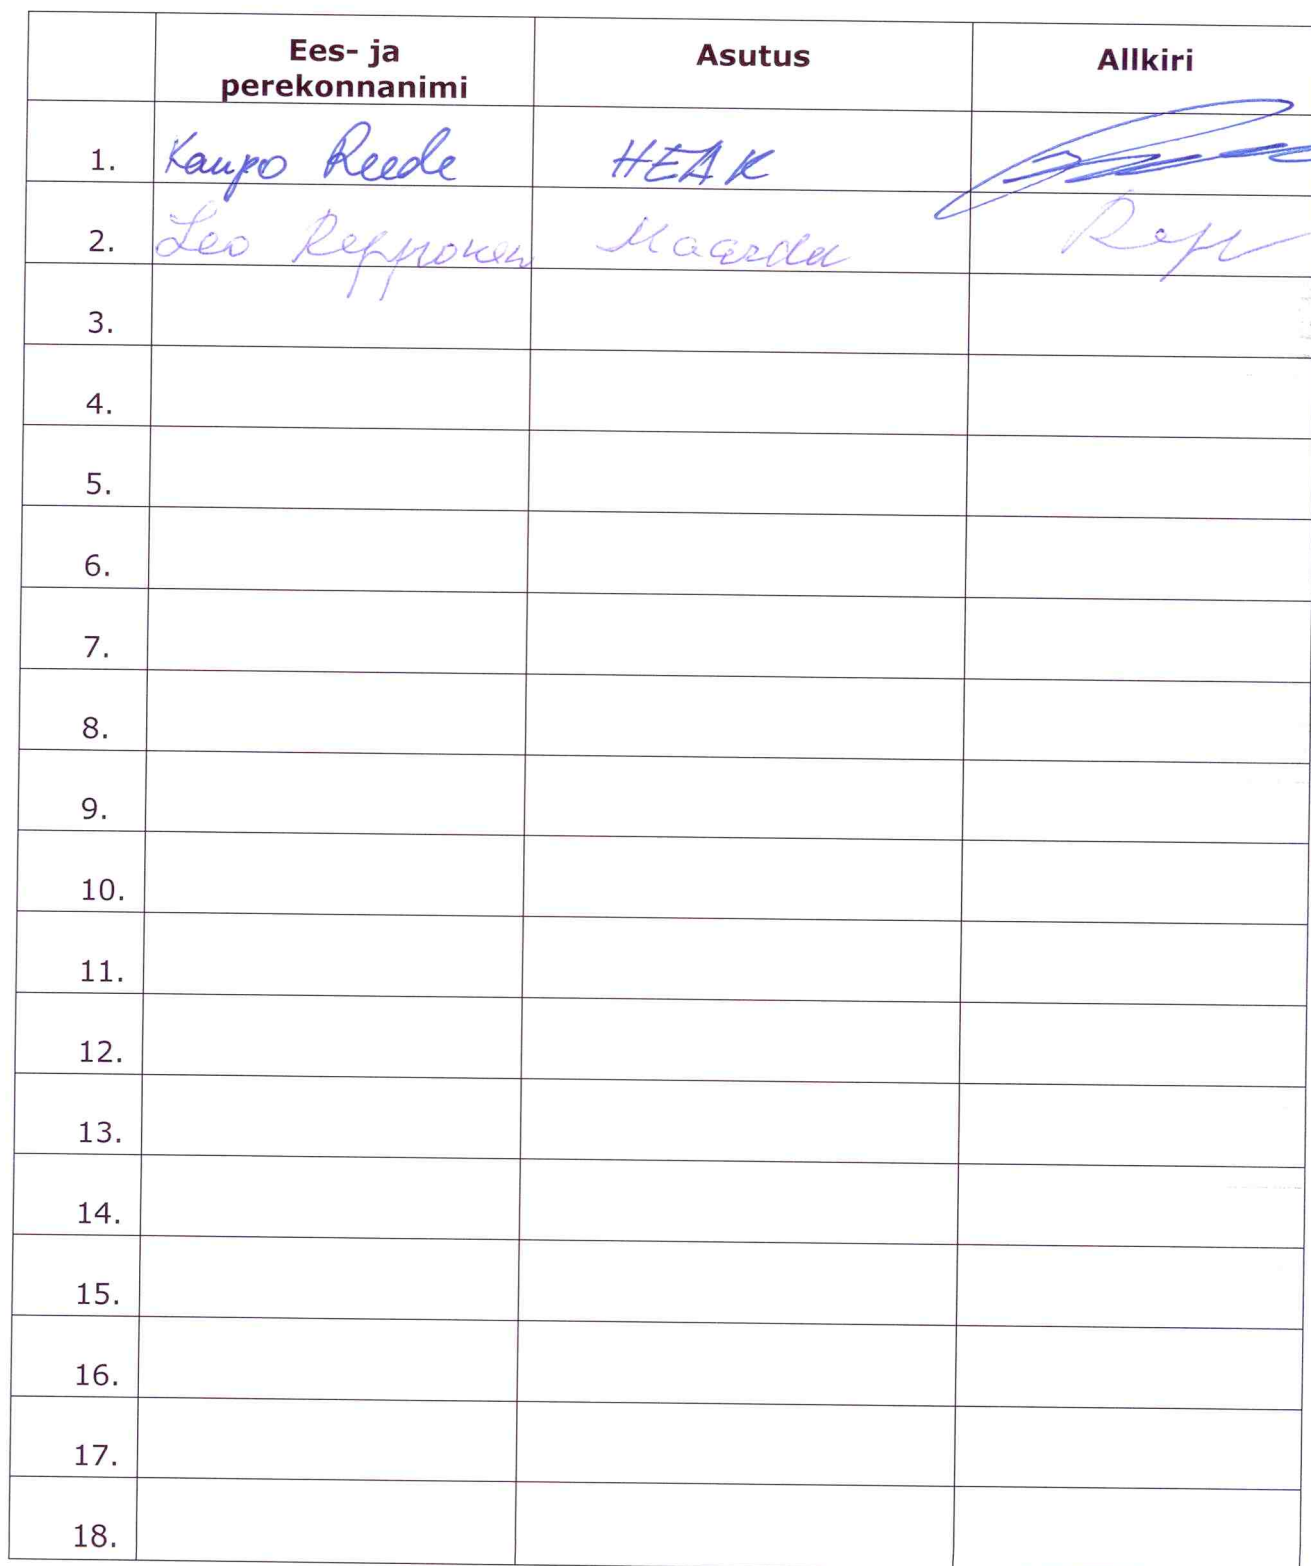 Ees- ja perekonnanimi Asutus Allkiri
1. Kaupo Reede HEAK
2. Leo Repponen Maardu
3.
4.
5.
6.
7.
8.
9.
10.
11.
12.
13.
14.
15.
16.
17.
18.